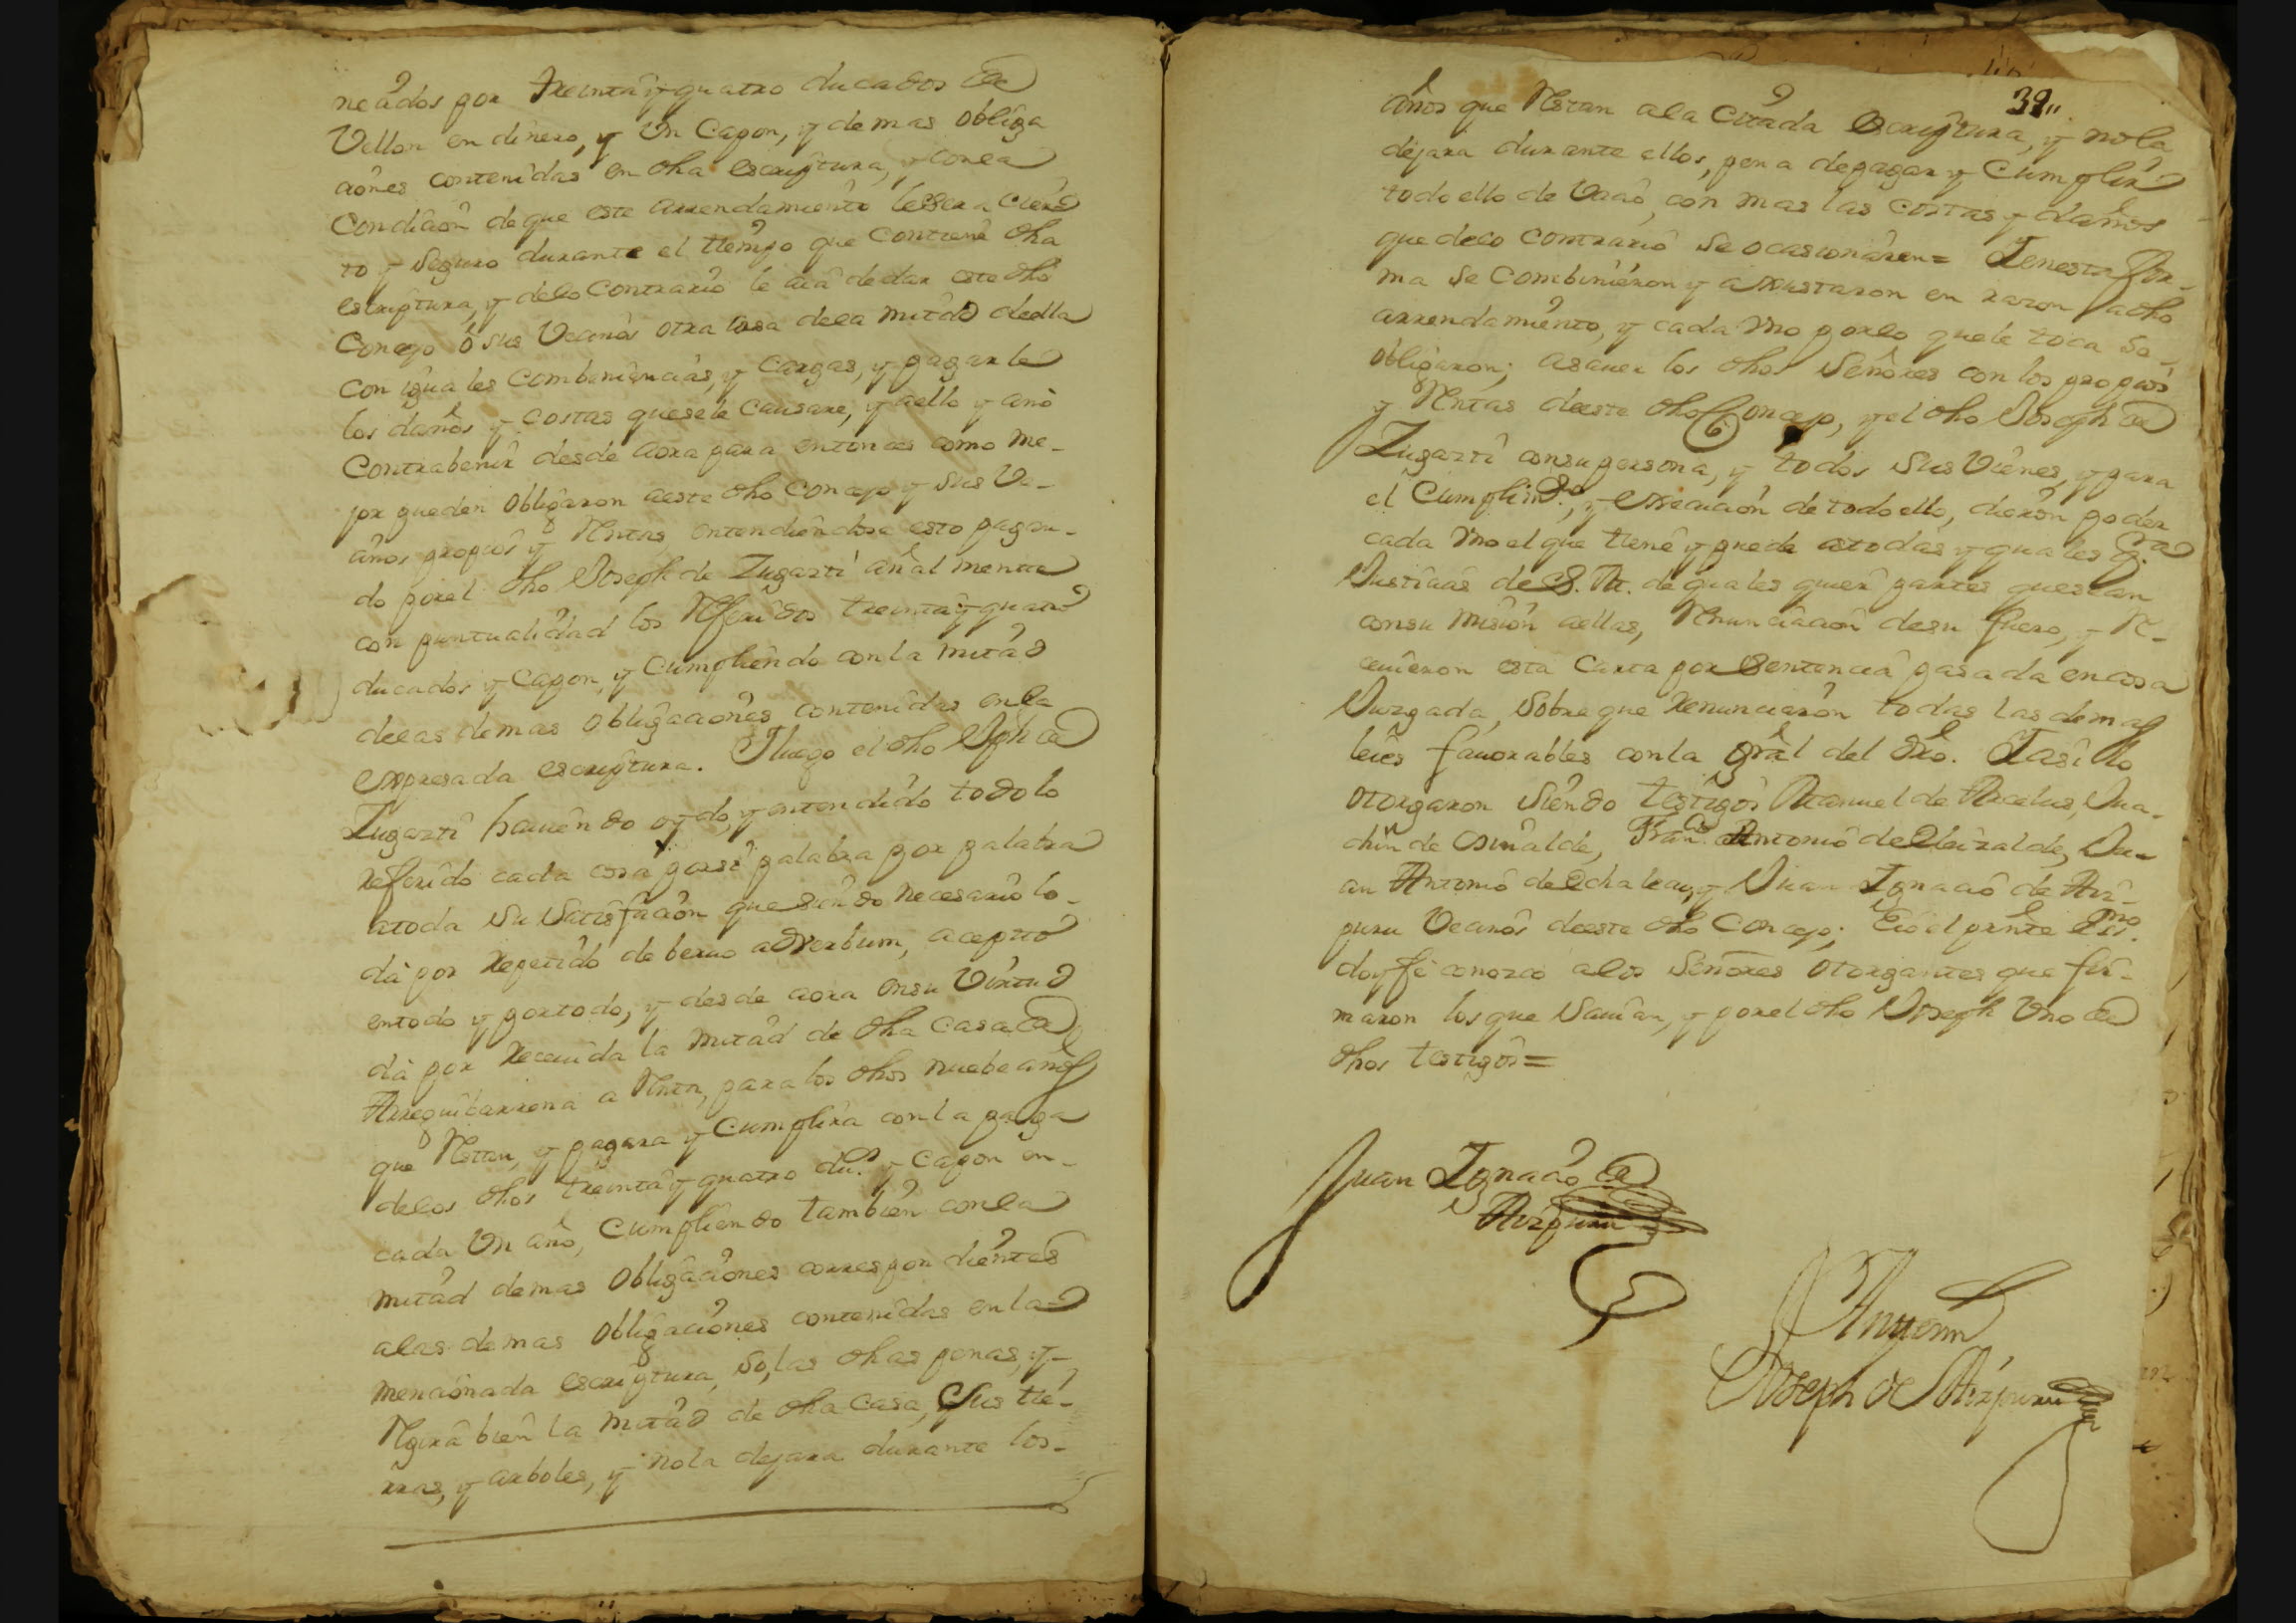 neados por treinta y quatro ducados de
Vellon en dinero, y Un Capon, y demas obliga
ciones contenidas en dha escriptura, y con la
Condicion de que este arrendamiento le sera cier
to y seguro durante el tiempo que contiene dha
escriptura, y delo Contrario le aia de dar este dho
Concejo ô sus Vecinos otra casa dela mitad della
con iguales combeniencias, y cargas, y pagarle
los daños y costas que sele causare, y aello y ano
Contrabenir desde aora para entonces como me-
jor pueden obligaron aeste dho Concejo y sus Ve-
cinos propios y Rentas, entendiendose esto pagan-
do por el dho Joseph de Zugazti añalmente
con puntualidad los Referidos treinta y quatro
ducados y Capon, y Cumpliendo con la mitad
delas demas obligaciones contenidas en la
expresada escriptura. I luego el dho Jph de
Zugazti hauiendo oydo, y entendido todo lo
referido cada cosa por si palabra por palabra
atoda su satisfacion que siendo necesario lo-
dà por repetido de beruo adverbum, acepto
entodo y portodo, y desde aora en su Virtud
dà por receuida la mitad de dha casa de
Arreguibarrena a Renta, para los dhos nuebe años
que Restan, y pagara y Cumplira con la paga
delos dhos treinta y quatro du.s y capon en-
cada Un año, Cumpliendo tambien con la
mitad demas obligaciones correspondientes
alas demas obligaciones contenidas en la
mencionada escriptura, so, las dhas penas, y-
Regira bien la mitad de dha casa, y sus tie-
rras, y arboles, y no la dejara durante los-
39,,
años que Restan ala Citada escriptura, y no la
dejara durante ellos, pena depagar y Cumplir
todo ello de Vacio, con mas las costas y daños
que delo contrario se ocasionaren= I en esta for-
ma se combinieron y axustaron en razon a dho
arrendamiento, y cada Vno porlo quele toca se-
obligaron; asauer los dhos Señores con los propios
y Rentas deeste dho Concejo, y el dho Joseph de
Zugazti con su persona, y todos sus Vienes, y para
el Cumplim.to, y execucion de todo ello, dieron poder
cada Vno el que tiene y puede atodas y quales q.ra
Justicias de S. M. de quales quier partes que sean
con su mision aellas, Renunciacion desu fuero, y Re-
ceuieron esta Carta por sentencia pasada en cosa
Juzgada, sobre que Renunciaron todas las demas
leies fauorables con la gral del dro. I asi lo
otorgaron siendo testigos Manuel de Arcelus, Jua-
chin de Osinalde, Fran.co Antonio de Eleizalde, Ju-
an Antonio de Echaleeu, y Juan Ignacio de Aiz-
puru Vecinos deeste dho Concejo; E io el prnte Ess.no
doy fe conozco alos señores otorgantes que fir-
maron los que sauian, y por el dho Joseph Vno de
dhos testigos=
Juan Ignacio de
Aizpuru
Ante mi
Joseph de Aizpuru